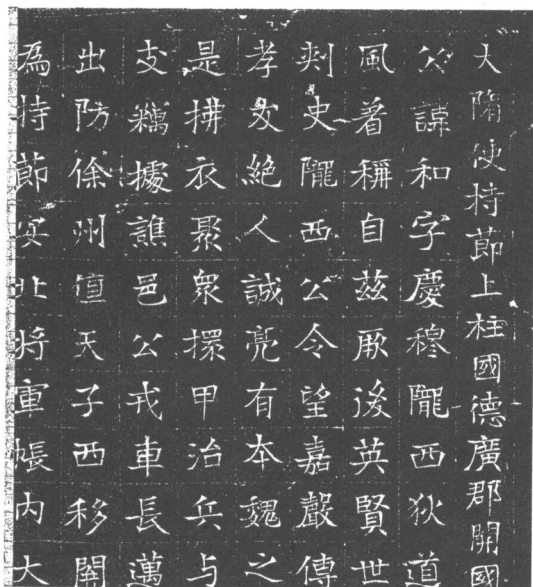 大隋使持節上柱國德廣郡開國
公諱和字慶穆隴西狄道
風著稱自兹厥後英賢世
刺史隴西公令望嘉聲傳
孝友絶人誠亮有本魏之
是拂衣聚衆擐甲治兵与
支糯據譙邑公戎車長邁
出防徐州值天子西移關
為持節安北将軍帳内大